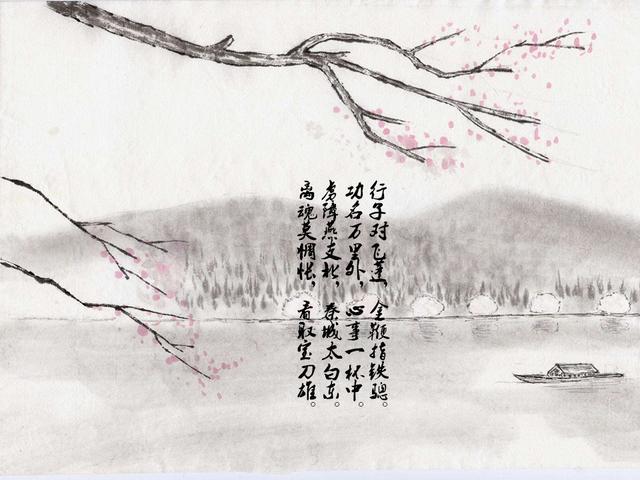 行子对飞蓬，金鞭指铁骢。
功名万里外，心事一杯中。
虏障燕支北，秦城太白东。
离魂莫惆怅，看取宝刀雄。